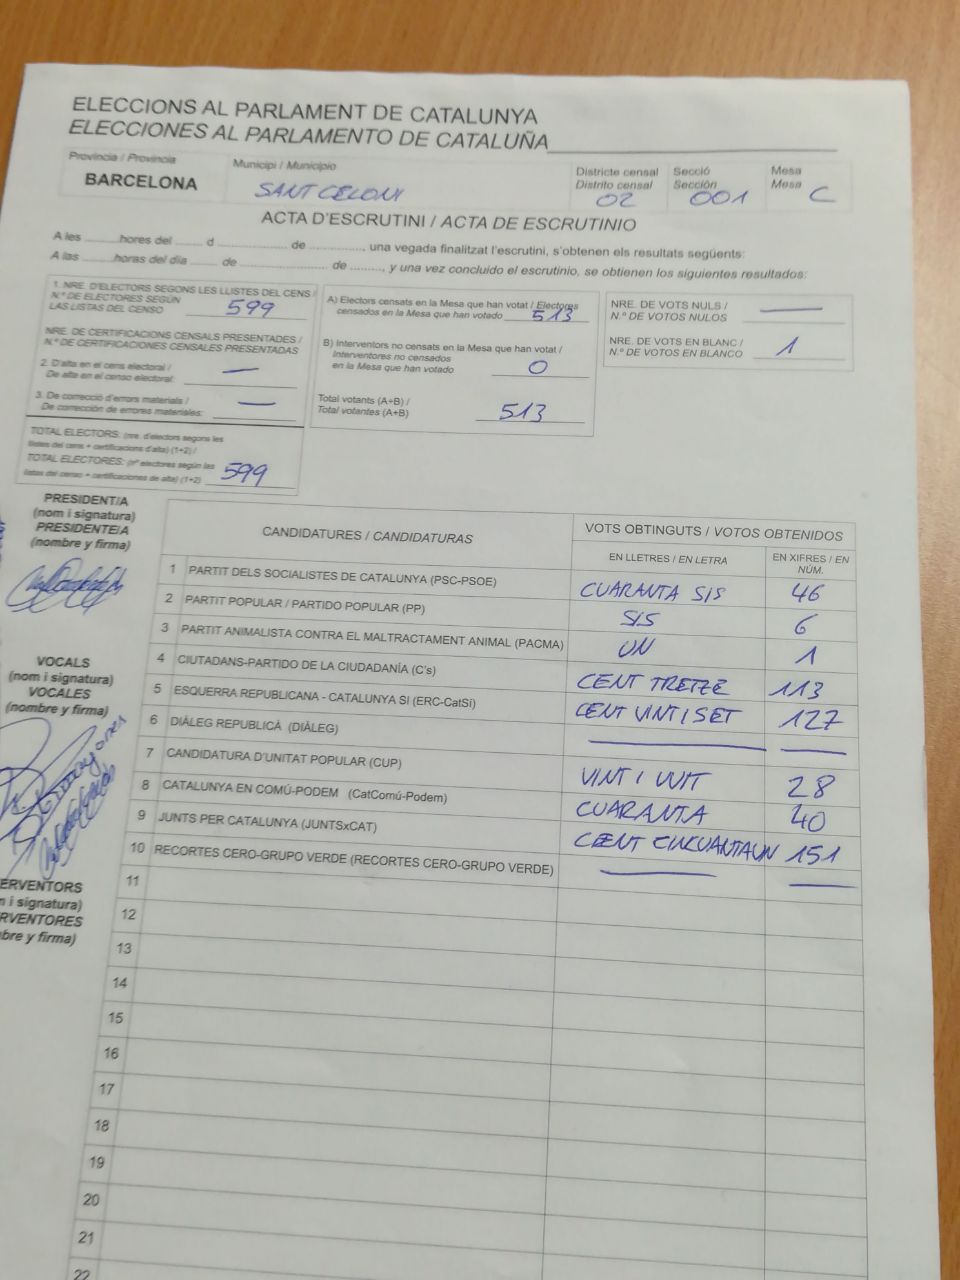 ELECCIONS AL PARLAMENT DE CATALUNYA
ELECCIONES AL PARLAMENTO DE CATALUÑA
Província / Provincia
BARCELONA
Municipi / Municipio
SANT CELONI
Districte censal
Distrito censal
02
Secció
Sección
001
Mesa
Mesa
C
ACTA D'ESCRUTINI / ACTA DE ESCRUTINIO
A les ..........hores del ........ d ..................... de ................, una vegada finalitzat l'escrutini, s'obtenen els resultats següents:
A las ..........horas del día ........ de .......................... de ........., y una vez concluido el escrutinio, se obtienen los siguientes resultados:
1. NRE. D'ELECTORS SEGONS LES LLISTES DEL CENS /
N.º DE ELECTORES SEGÚN
LAS LISTAS DEL CENSO
599
NRE. DE CERTIFICACIONS CENSALS PRESENTADES /
N.º DE CERTIFICACIONES CENSALES PRESENTADAS
2. D'alta en el cens electoral /
De alta en el censo electoral:
—
3. De correcció d'errors materials /
De corrección de errores materiales:
—
TOTAL ELECTORS: (nre. d'electors segons les
llistes del cens + certificacions d'alta) (1+2) /
TOTAL ELECTORES: (nº electores según las
listas del censo + certificaciones de alta) (1+2)
599
A) Electors censats en la Mesa que han votat / Electores
censados en la Mesa que han votado
513
B) Interventors no censats en la Mesa que han votat /
Interventores no censados
en la Mesa que han votado
0
Total votants (A+B) /
Total votantes (A+B)
513
NRE. DE VOTS NULS /
N.º DE VOTOS NULOS
—
NRE. DE VOTS EN BLANC /
N.º DE VOTOS EN BLANCO
1
PRESIDENT/A
(nom i signatura)
PRESIDENTE/A
(nombre y firma)
VOCALS
(nom i signatura)
VOCALES
(nombre y firma)
ERVENTORS
m i signatura)
RVENTORES
bre y firma)
CANDIDATURES / CANDIDATURAS
VOTS OBTINGUTS / VOTOS OBTENIDOS
EN LLETRES / EN LETRA
EN XIFRES / EN
NÚM.
1 PARTIT DELS SOCIALISTES DE CATALUNYA (PSC-PSOE) CUARANTA SIS 46
2 PARTIT POPULAR / PARTIDO POPULAR (PP) SIS 6
3 PARTIT ANIMALISTA CONTRA EL MALTRACTAMENT ANIMAL (PACMA) UN 1
4 CIUTADANS-PARTIDO DE LA CIUDADANÍA (C's) CENT TRETZE 113
5 ESQUERRA REPUBLICANA - CATALUNYA SÍ (ERC-CatSí) CENT VINT I SET 127
6 DIÀLEG REPUBLICÀ (DIÀLEG) — —
7 CANDIDATURA D'UNITAT POPULAR (CUP) VINT I VUIT 28
8 CATALUNYA EN COMÚ-PODEM (CatComú-Podem) CUARANTA 40
9 JUNTS PER CATALUNYA (JUNTSxCAT) CENT CINCUANTAUN 151
10 RECORTES CERO-GRUPO VERDE (RECORTES CERO-GRUPO VERDE) — —
11
12
13
14
15
16
17
18
19
20
21
22